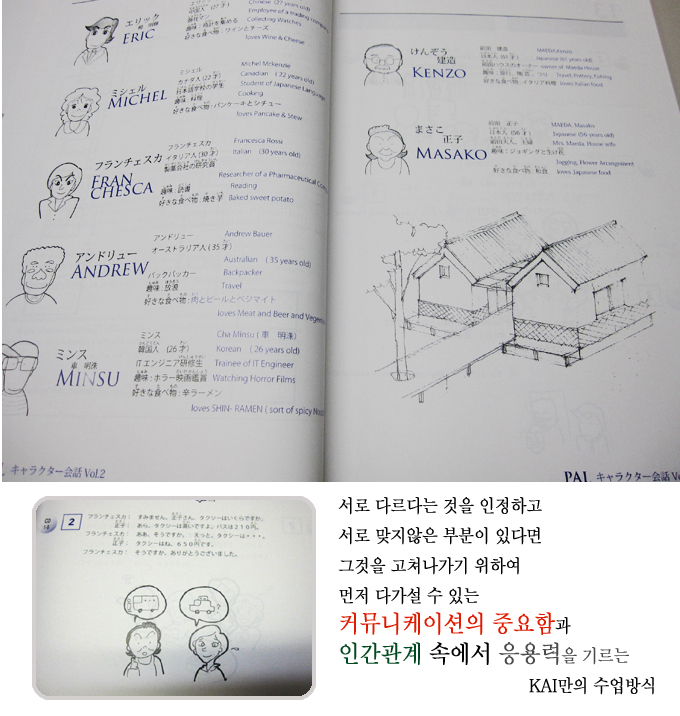 エリック
ERIC
Chinese (27 years old)
Employee of a trading company
趣味：時計を集める Collecting Watches
好きな食べ物：ワインとチーズ
loves Wine & Cheese
ミシェル
MICHEL
ミシェル Michel Mckenzie
カナダ人 (22才) Canadian ( 22 years old)
日本語学校の学生 Student of Japanese Language
趣味：料理 Cooking
好きな食べ物：パンケーキとシチュー
loves Pancake & Stew
フランチェスカ
FRAN
CHESCA
フランチェスカ Francesca Rossi
イタリア人 (30才) Italian (30 years old)
製薬会社の研究員
Researcher of a Pharmaceutical
趣味：読書 Reading
好きな食べ物：焼き芋 Baked sweet potato
アンドリュー
ANDREW
アンドリュー Andrew Bauer
オーストラリア人 (35才)
Australian ( 35 years old)
バックパッカー Backpacker
趣味：放浪 Travel
好きな食べ物：肉とビールとベジマイト
loves Meat and Beer and
ミンス
車 明洙
MINSU
ミンス Cha Minsu (車 明洙)
韓国人 (26才) Korean ( 26 years old)
ITエンジニア研修生 Trainee of IT Engineer
趣味：ホラー映画鑑賞 Watching Horror Films
好きな食べ物：辛ラーメン
loves SHIN- RAMEN ( sort of spicy
キャラクター会話 Vol.2
けんぞう
建造
KENZO
前田 建造 MAEDA,Kenzo
日本人 (61才) Japanese (61 years old)
前田ハウスのオーナー owner of Maeda House
趣味：旅行、陶芸、つり Travel, Pottery, Fishing
好きな食べ物：イタリア料理 loves Italian food
まさこ
正子
MASAKO
前田 正子 MAEDA, Masako
日本人 (56才) Japanese (56 years old)
前田夫人、主婦 Mrs. Maeda, House wife
趣味：ジョギングと生け花
Jogging, Flower Arrangement
好きな食べ物：和食 loves Japanese food
PAL キャラクター会話
2
フランチェスカ： すみません、正子さん、タクシーはいくらですか。
正子： あら、タクシーは高いですよ。バスは210円。
フランチェスカ： ああ、そうですか。 えっと、タクシーは・・・。
正子： タクシーはね、650円です。
フランチェスカ： そうですか、ありがとうございました。
?
서로 다르다는 것을 인정하고
서로 맞지않은 부분이 있다면
그것을 고쳐나가기 위하여
먼저 다가설 수 있는
커뮤니케이션의 중요함과
인간관계 속에서 응용력을 기르는
KAI만의 수업방식